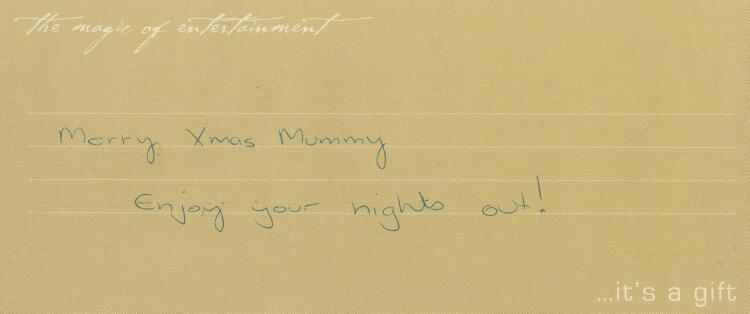 the magic of entertainment
Merry Xmas Mummy
Enjoy your nights out!
...it's a gift